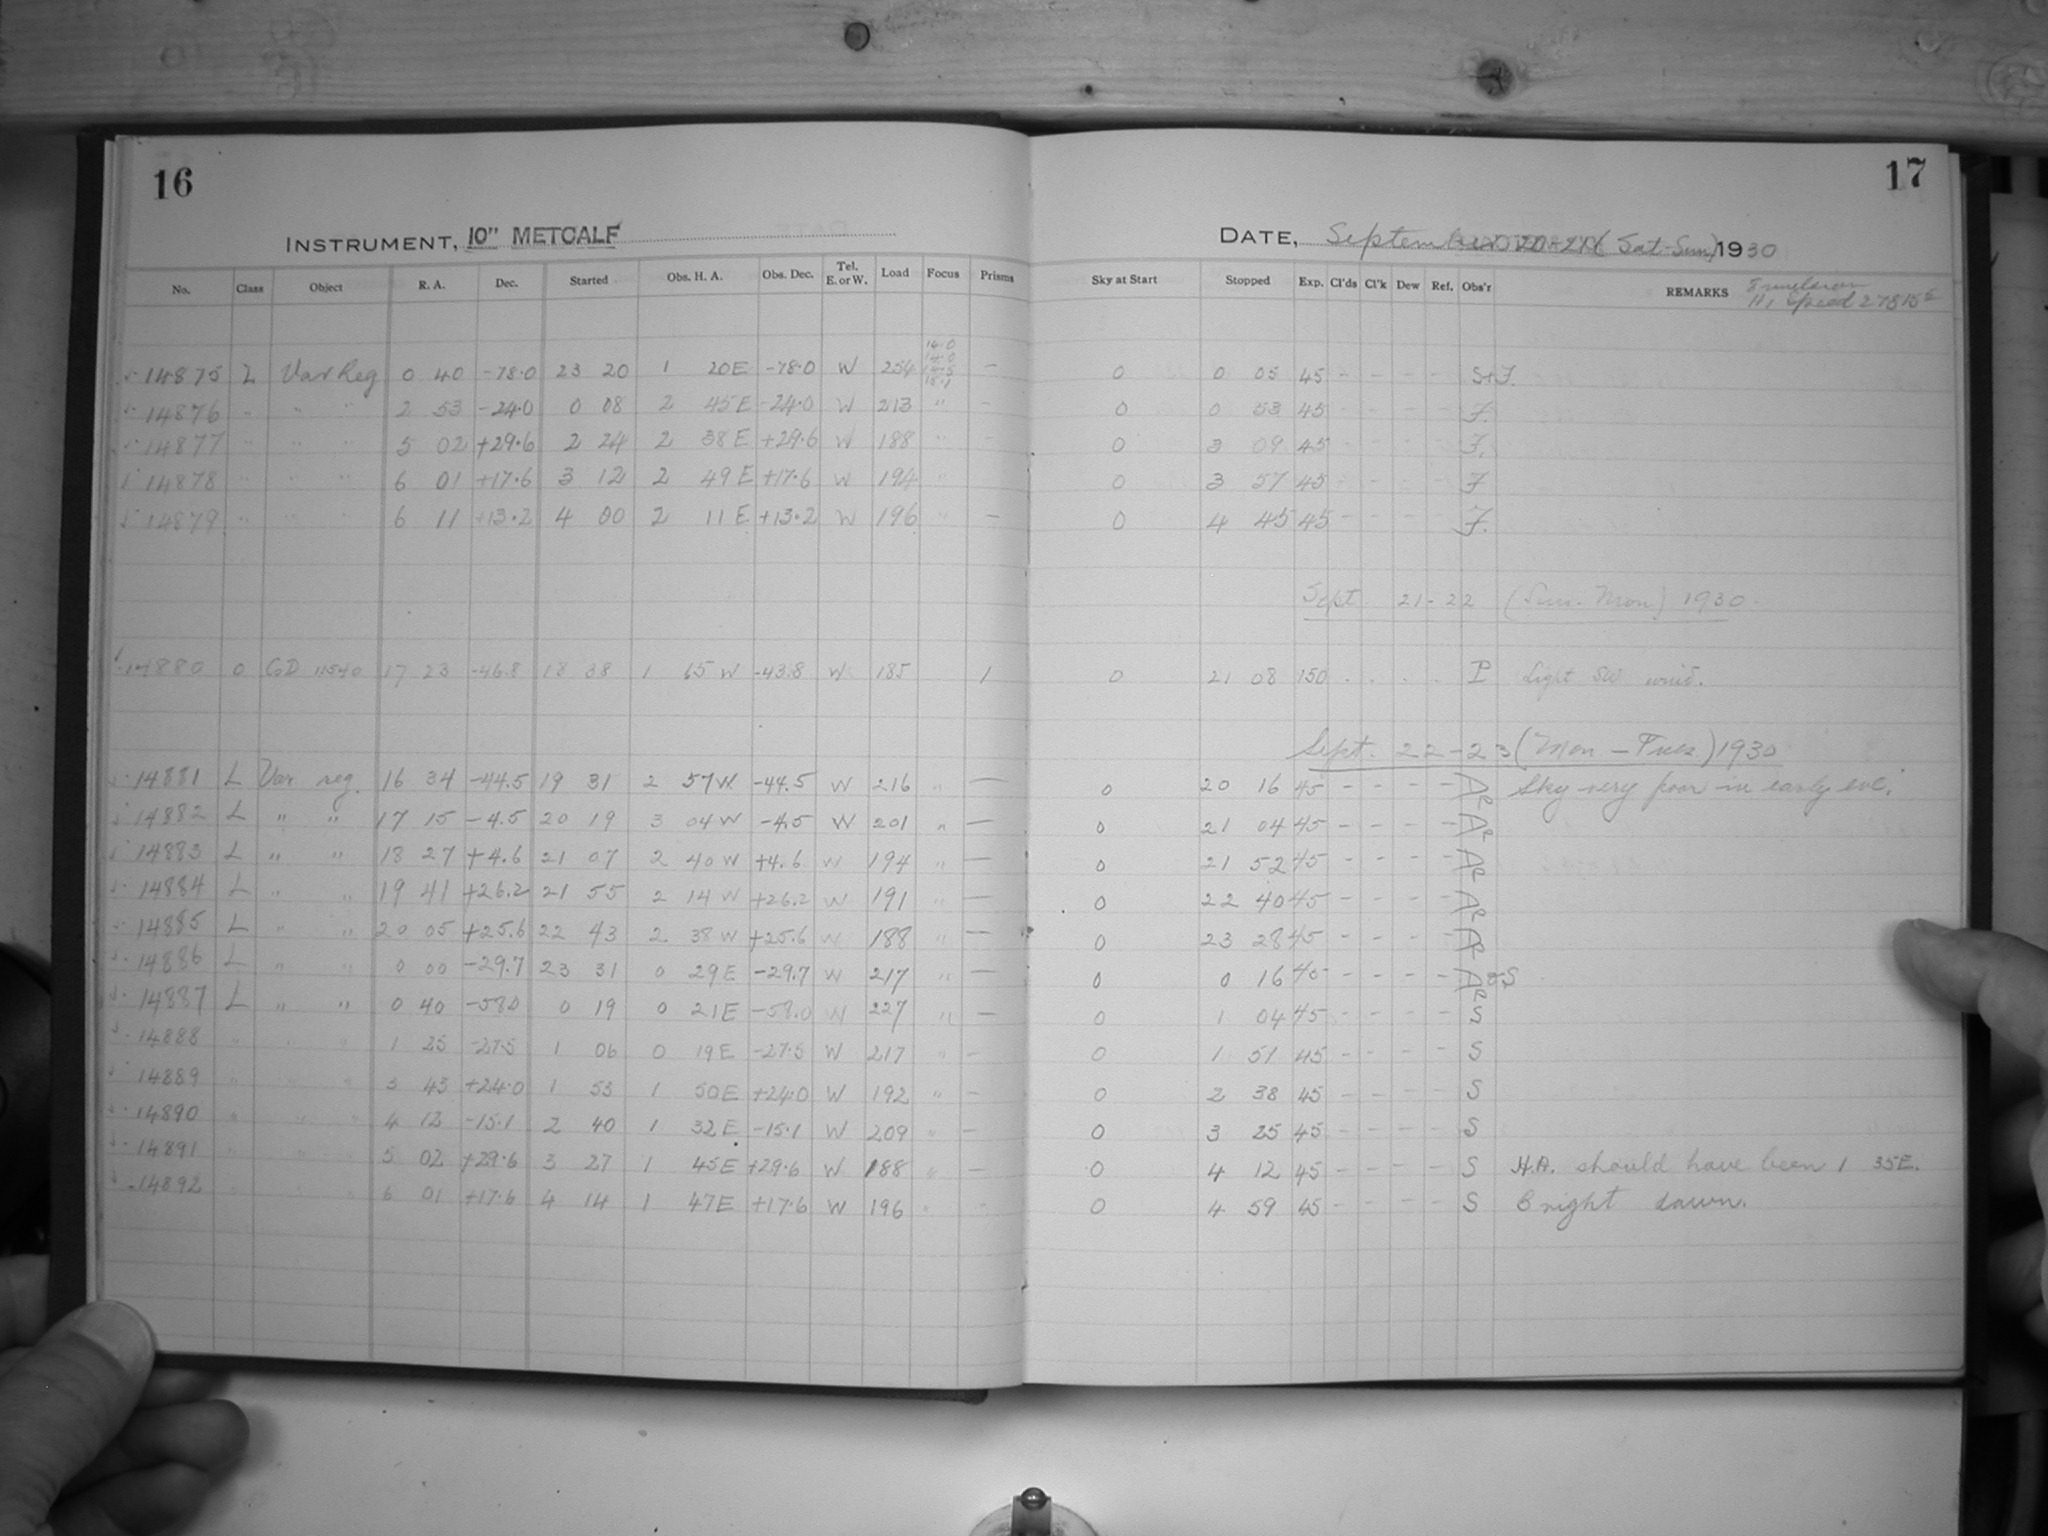 16
INSTRUMENT, 10" METCALF
No. Class Object R. A. Dec. Started Obs. H. A. Obs. Dec. Tel. E. or W. Load Focus Prisms
14.0
14.0
14875 L Var Reg 0 40 -78.0 23 20 1 20E -78.0 W 254 —
14876 " " " 2 53 -24.0 0 08 2 45E -24.0 W 213 " -
14877 " " " 5 02 +29.6 2 24 2 38E +29.6 W 188 " -
14878 " " " 6 01 +17.6 3 12 2 49E +17.6 W 194 "
14879 " " " 6 11 +13.2 4 00 2 11E +13.2 W 196 " —
14880 0 CoD 11540 17 23 -46.8 18 38 1 65W -43.8 W 185 1
14881 L Var reg. 16 34 -44.5 19 31 2 57W -44.5 W 216 " —
14882 L " " 17 15 -4.5 20 19 3 04W -4.5 W 201 " —
14883 L " " 18 27 +4.6 21 07 2 40W +4.6 W 194 " —
14884 L " " 19 41 +26.2 21 55 2 14W +26.2 W 191 " —
14885 L " " 20 05 +25.6 22 43 2 38W +25.6 W 188 " —
14886 L " " 0 00 -29.7 23 31 0 29E -29.7 W 217 " —
14887 L " " 0 40 -58.0 0 19 0 21E -58.0 W 227 " —
14888 " " " 1 25 -27.5 1 06 0 19E -27.5 W 217 " -
14889 " " " 3 43 +24.0 1 53 1 50E +24.0 W 192 " -
14890 " " " 4 12 -15.1 2 40 1 32E -15.1 W 209 " -
14891 " " " 5 02 +29.6 3 27 1 45E +29.6 W 188 " -
14892 " " " 6 01 +17.6 4 14 1 47E +17.6 W 196 " -
17
DATE, September 20-21 (Sat-Sun) 1930
Sky at Start Stopped Exp. Cl'ds Cl'k Dew Ref. Obs'r REMARKS Emulsion
Hi Speed 27815
0 0 05 45 - - - - S+F.
0 0 53 45 - - - - F.
0 3 09 45 - - - - F.
0 3 57 45 - - - - F
0 4 45 45 - - - - F.
Sept 21-22 (Sun-Mon) 1930.
0 21 08 150 . . . . P Light SW wind.
Sept. 22-23 (Mon-Tues.) 1930
0 20 16 45 - - - - AR Sky very poor in early eve.
0 21 04 45 - - - - AR
0 21 52 45 - - - - AR
0 22 40 45 - - - - AR
0 23 28 45 - - - - AR
0 0 16 45 - - - - AR & S
0 1 04 45 - - - - S
0 1 51 45 - - - - S
0 2 38 45 - - - - S
0 3 25 45 - - - - S
0 4 12 45 - - - - S H.A. should have been 1 35E.
0 4 59 45 - - - - S Bright dawn.